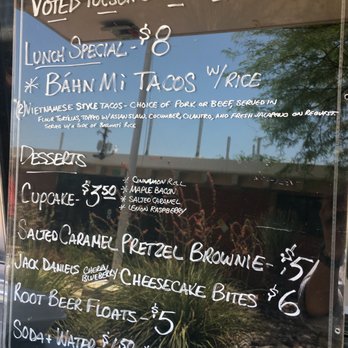 VOTED TUCSON
LUNCH SPECIAL - $8
* BÁHN MI TACOS W/RICE
VIETNAMESE STYLE TACOS - CHOICE OF PORK OR BEEF, SERVED IN
FLOUR TORTILLAS, TOPPED W/ASIAN SLAW, CUCUMBER, CILANTRO, AND FRESH JALAPENO ON REQUEST.
SERVED W/ A SIDE OF BASMATI RICE
DESSERTS
CUPCAKE - $3.50
* CINNAMON ROLL
* MAPLE BACON
* SALTED CARAMEL
* LEMON RASPBERRY
SALTED CARAMEL PRETZEL BROWNIE - $5
JACK DANIELS CHERRY BLUEBERRY CHEESECAKE BITES $6
ROOT BEER FLOATS - $5
SODA + WATER